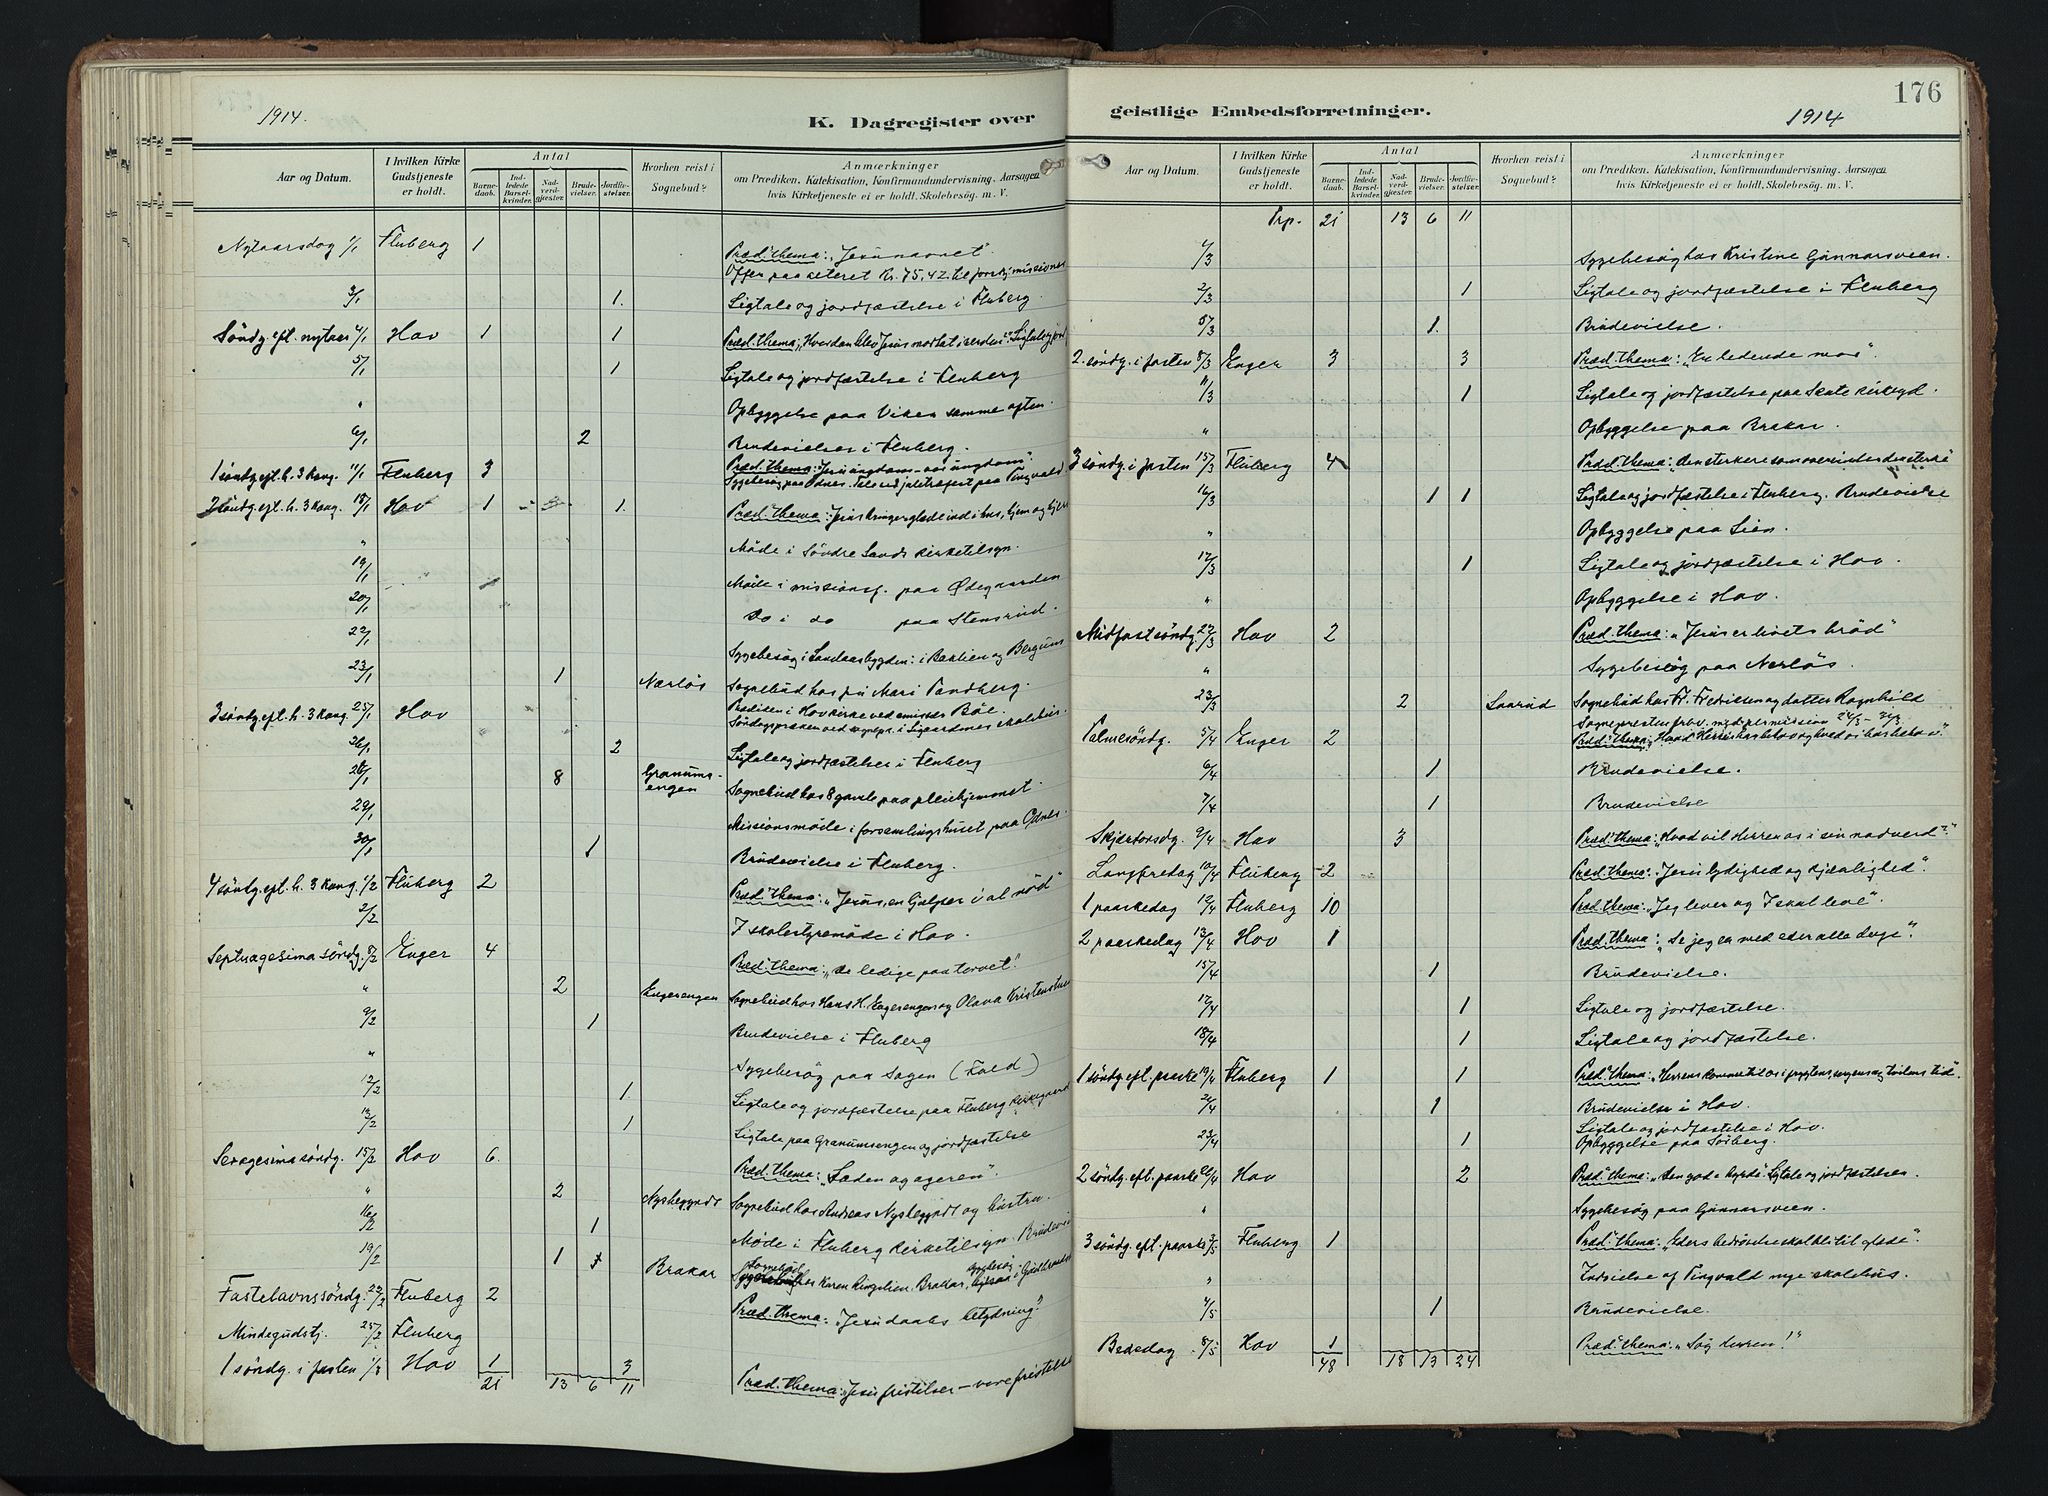 1914.
K. Dagregister over
Aar og Datum.
I hvilken Kirke Gudstjeneste er holdt.
Antal
Barnedaab.
Indledede Barselkvinder.
Nadverdgjæster.
Brudevielser.
Jordfæstelser.
Hvorhen reist i Sognebud?
Anmærkninger
om Prædiken, Katekisation, Konfirmandundervisning. Aarsagen
hvis Kirketjeneste ei er holdt. Skolebesøg. m. V.
Nytaarsdag 1/1 Fluberg 1 Præd. thema: "Jesunavnet"
Offer paa alteret Kr. 75,42 til forskj. missioner
3/1 1. Ligtale og jordfæstelse i Fluberg.
Søndg. eft. nytaar 4/1 Hov 1 1 Præd. thema: "Hvordan blev Jesus mottat i verden?" Ligtale og jord
5/1 1 Ligtale og jordfæstelse i Fluberg
" Opbyggelse paa Viken samme aften.
6/1 2 Brudevielser i Fluberg.
1 søndg. eft. h. 3 kong. 11/1 Fluberg 3 Præd. thema: "Jesu ungdom - vor ungdom"
Sygebesøg paa Odnes. Tale ved juletræfest paa Tingvald
2 søndg. eft. h. 3 kong. 18/1 Hov 1 1. Præd. thema: "Jesus bringer glæde ind i hus, hjem og hjerte
" Møde i Søndre Lands kirketilsyn.
19/1 Møde i missionsf. paa Ødegaarden
20/1 do i do paa Stensrud.
22/1 Sygebesøg i Landaasbygden: i Baklien og Bergum
23/1 1 Nærløs Sognebud hos fru Mari Tandberg.
3 søndg. eft. h. 3 kong. 25/1 Hov Prædiken i Hov kirke ved emissær Bøe.
Søndagspræken ved sognepr. i skolehus.
26/1 2 Ligtale og jordfæstelser i Fluberg
28/1 8 Granumsengen Sognebud hos 8 gamle paa pleiehjemmet.
29/1 Missionsmøde i forsamlingshuset paa Odnes.
30/1 1 Brudevielse i Fluberg.
4 søndg. eft. h. 3 kong. 1/2 Fluberg 2 Præd. thema: "Jesus, en hjælper i al nød"
2/2 I skolestyremøde i Hov.
Septuagesima søndg. 8/2 Enger 4 Præd. thema: "De ledige paa torvet".
" 2 Engerengen Sognebud hos Hans H. Engerengen og Olava Kristenstuen
9/2 1 Brudevielse i Fluberg
" Sygebesøg paa Sogen (Fald)
12/2 1. Ligtale og jordfæstelse paa Fluberg kirkegaard
13/2 1 Ligtale paa Granumsengen og jordfæstelse
Sexagesima søndg. 15/2 Hov 6. Præd. thema: "Sæden og ageren".
" 2 Nysbegyndt Sognebud hos Andreas Nysbegyndt og hustru.
16/2 1 Møde i Fluberg kirketilsyn. Brudevi
19/2 1 Brakar Sognebud hos Karen Ringelien, Brakar, sygebesøg
Fastelavnssøndg. 22/2 Fluberg 2 Præd. thema: "Jesu daabs betydning"
Mindegudstj. 25/2 Fluberg
1 søndg. i fasten 1/3 Hov 1 3 Præd. thema: "Jesu fristelser - vore fristelser
21 13 6 11
176
geistlige Embedsforretninger.
1914
Aar og Datum.
I hvilken Kirke Gudstjeneste er holdt.
Antal
Barnedaab.
Indledede Barselkvinder.
Nadverdgjæster.
Brudevielser.
Jordfæstelser.
Hvorhen reist i Sognebud?
Anmærkninger
om Prædiken, Katekisation, Konfirmandundervisning. Aarsagen
hvis Kirketjeneste ei er holdt. Skolebesøg. m. V.
Trp. 21 13 6 11
2/3 1 Ligtale og jordfæstelse i Fluberg
Sygebesøg hos Kristine Gunnarsveen.
5/3 1. Brudevielse.
2. søndg. i fasten 8/3 Enger 3 3 Præd. thema: "En ledende mor".
11/3 1 Ligtale og jordfæstelse paa Skute kirkegd.
" Opbyggelse paa Brakar.
3 søndg. i fasten 15/3 Fluberg 4 Præd. thema: "Den sterkere som overvinder den sterke"
16/3 1 1 Ligtale og jordfæstelse i Fluberg. Brudevielse
" Opbyggelse paa Lien.
17/3 1 Ligtale og jordfæstelse i Hov.
" Opbyggelse i Hov.
Midfastsøndg. 22/3 Hov 2 Præd. thema: "Jesus er livets brød"
" Sygebesøg paa Nærløs.
23/3 2 Laarud Sognebud hos Fr. Fredriksen og datter Ragnhild
Sognepresten frav. med permission 24/3 -
Palmesøndg. 5/4 Enger 2 Præd. thema: "Hvad Herren har behov og hvad vi har behov".
6/4 1 Brudevielse.
7/4 1 Brudevielse
Skjærtorsdg. 9/4 Hov 3 Præd. thema: "Hvad vil Herren os i sin nadverd?"
Langfredag 10/4 Fluberg 2 Præd. thema: "Jesu lydighed og kjærlighed".
1 paaskedag 12/4 Fluberg 10 Præd. thema: "Jeg lever og I skal leve".
2 paaskedag 13/4 Hov 1 Præd. thema: "Se jeg er med eder alle dage".
15/4 1 Brudevielse.
17/4 1 Ligtale og jordfæstelse.
18/4 1 Ligtale og jordfæstelse.
1 søndg. eft. paaske 19/4 Fluberg 1 1 Præd. thema: "Herren kommer til os i frygtens, sorgens og tvilens tid.
21/4 1 Brudevielse i Hov.
23/4 1 Ligtale og jordfæstelse i Hov.
Opbyggelse paa Sørberg.
2 søndg. eft. paaske 26/4 Hov 2 Præd. thema: "Den gode hyrde" Ligtale og jordfæstelser.
" Sygebesøg paa Gunnarsveen.
3 søndg. eft. paaske 3/5 Fluberg 1 Præd. thema: "Eders bedrøvelse skal bli til glæde".
" Indvielse af Tingvald nye skolehus.
4/5 1 Brudevielse.
Bededag 8/5 Hov 1 Præd. thema: "Søg Herren!"
48 18 13 24